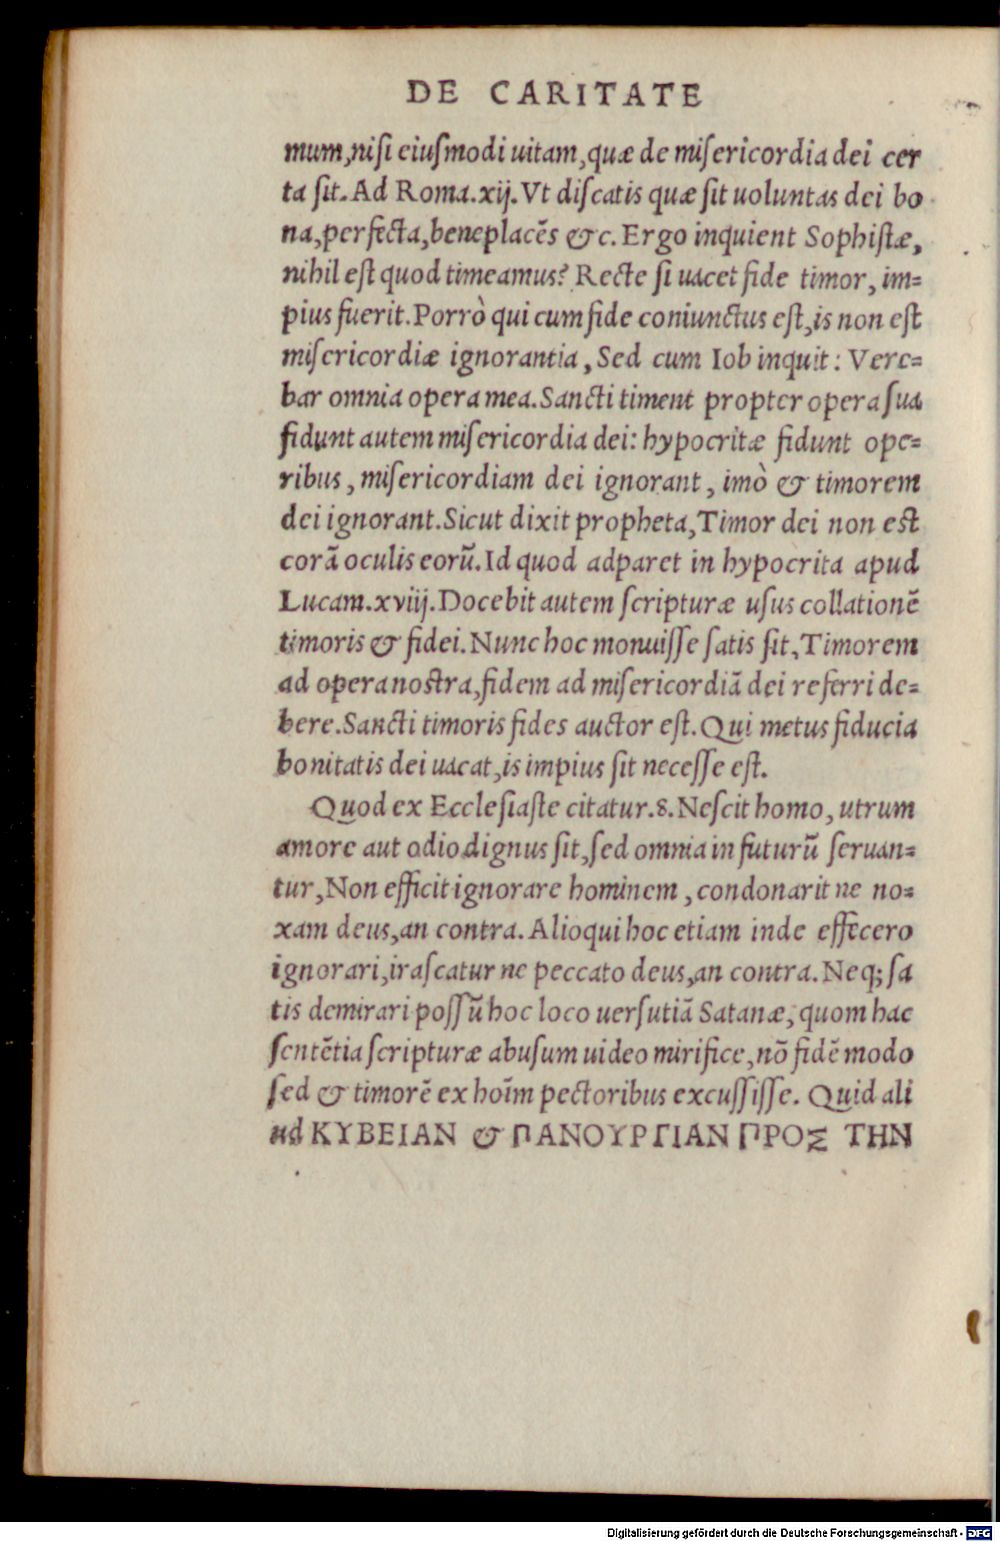 DE CARITATE
mum, niſi eiuſmodi uitam, quæ de miſericordia dei cer
ta ſit. Ad Roma.xij. Vt diſcatis quæ ſit uoluntas dei bo
na, perfecta, beneplacẽs &c. Ergo inquient Sophiſtæ,
nihil eſt quod timeamus? Recte ſi uacet fide timor, im=
pius fuerit. Porrò qui cum fide coniunctus eſt, is non eſt
miſericordiæ ignorantia, Sed cum Iob inquit: Vere=
bar omnia opera mea. Sancti timent propter opera ſua
fidunt autem miſericordia dei: hypocritæ fidunt ope=
ribus, miſericordiam dei ignorant, imò & timorem
dei ignorant. Sicut dixit propheta, Timor dei non eſt
corã oculis eorũ. Id quod adparet in hypocrita apud
Lucam.xviij. Docebit autem ſcripturæ uſus collationẽ
timoris & fidei. Nunc hoc monuiſſe ſatis ſit, Timorem
ad opera noſtra, fidem ad miſericordiã dei referri de=
bere. Sancti timoris fides auctor eſt. Qui metus fiducia
bonitatis dei uacat, is impius ſit neceſſe eſt.
Quod ex Eccleſiaſte citatur.8. Neſcit homo, utrum
amore aut odio dignus ſit, ſed omnia in futurũ ſeruan=
tur, Non efficit ignorare hominem, condonarit ne no=
xam deus, an contra. Alioqui hoc etiam inde effecero
ignorari, iraſcatur ne peccato deus, an contra. Neq; ſa
tis demirari poſſũ hoc loco uerſutiã Satanæ, quom hac
ſentẽtia ſcripturæ abuſum uideo mirifice, nõ fidẽ modo
ſed & timorẽ ex hoĩm pectoribus excuſſiſſe. Quid ali
ud ΚΥΒΕΙΑΝ & ΠΑΝΟΥΡΓΙΑΝ ΠΡΟΣ ΤΗΝ
Digitalisierung gefördert durch die Deutsche Forschungsgemeinschaft - DFG